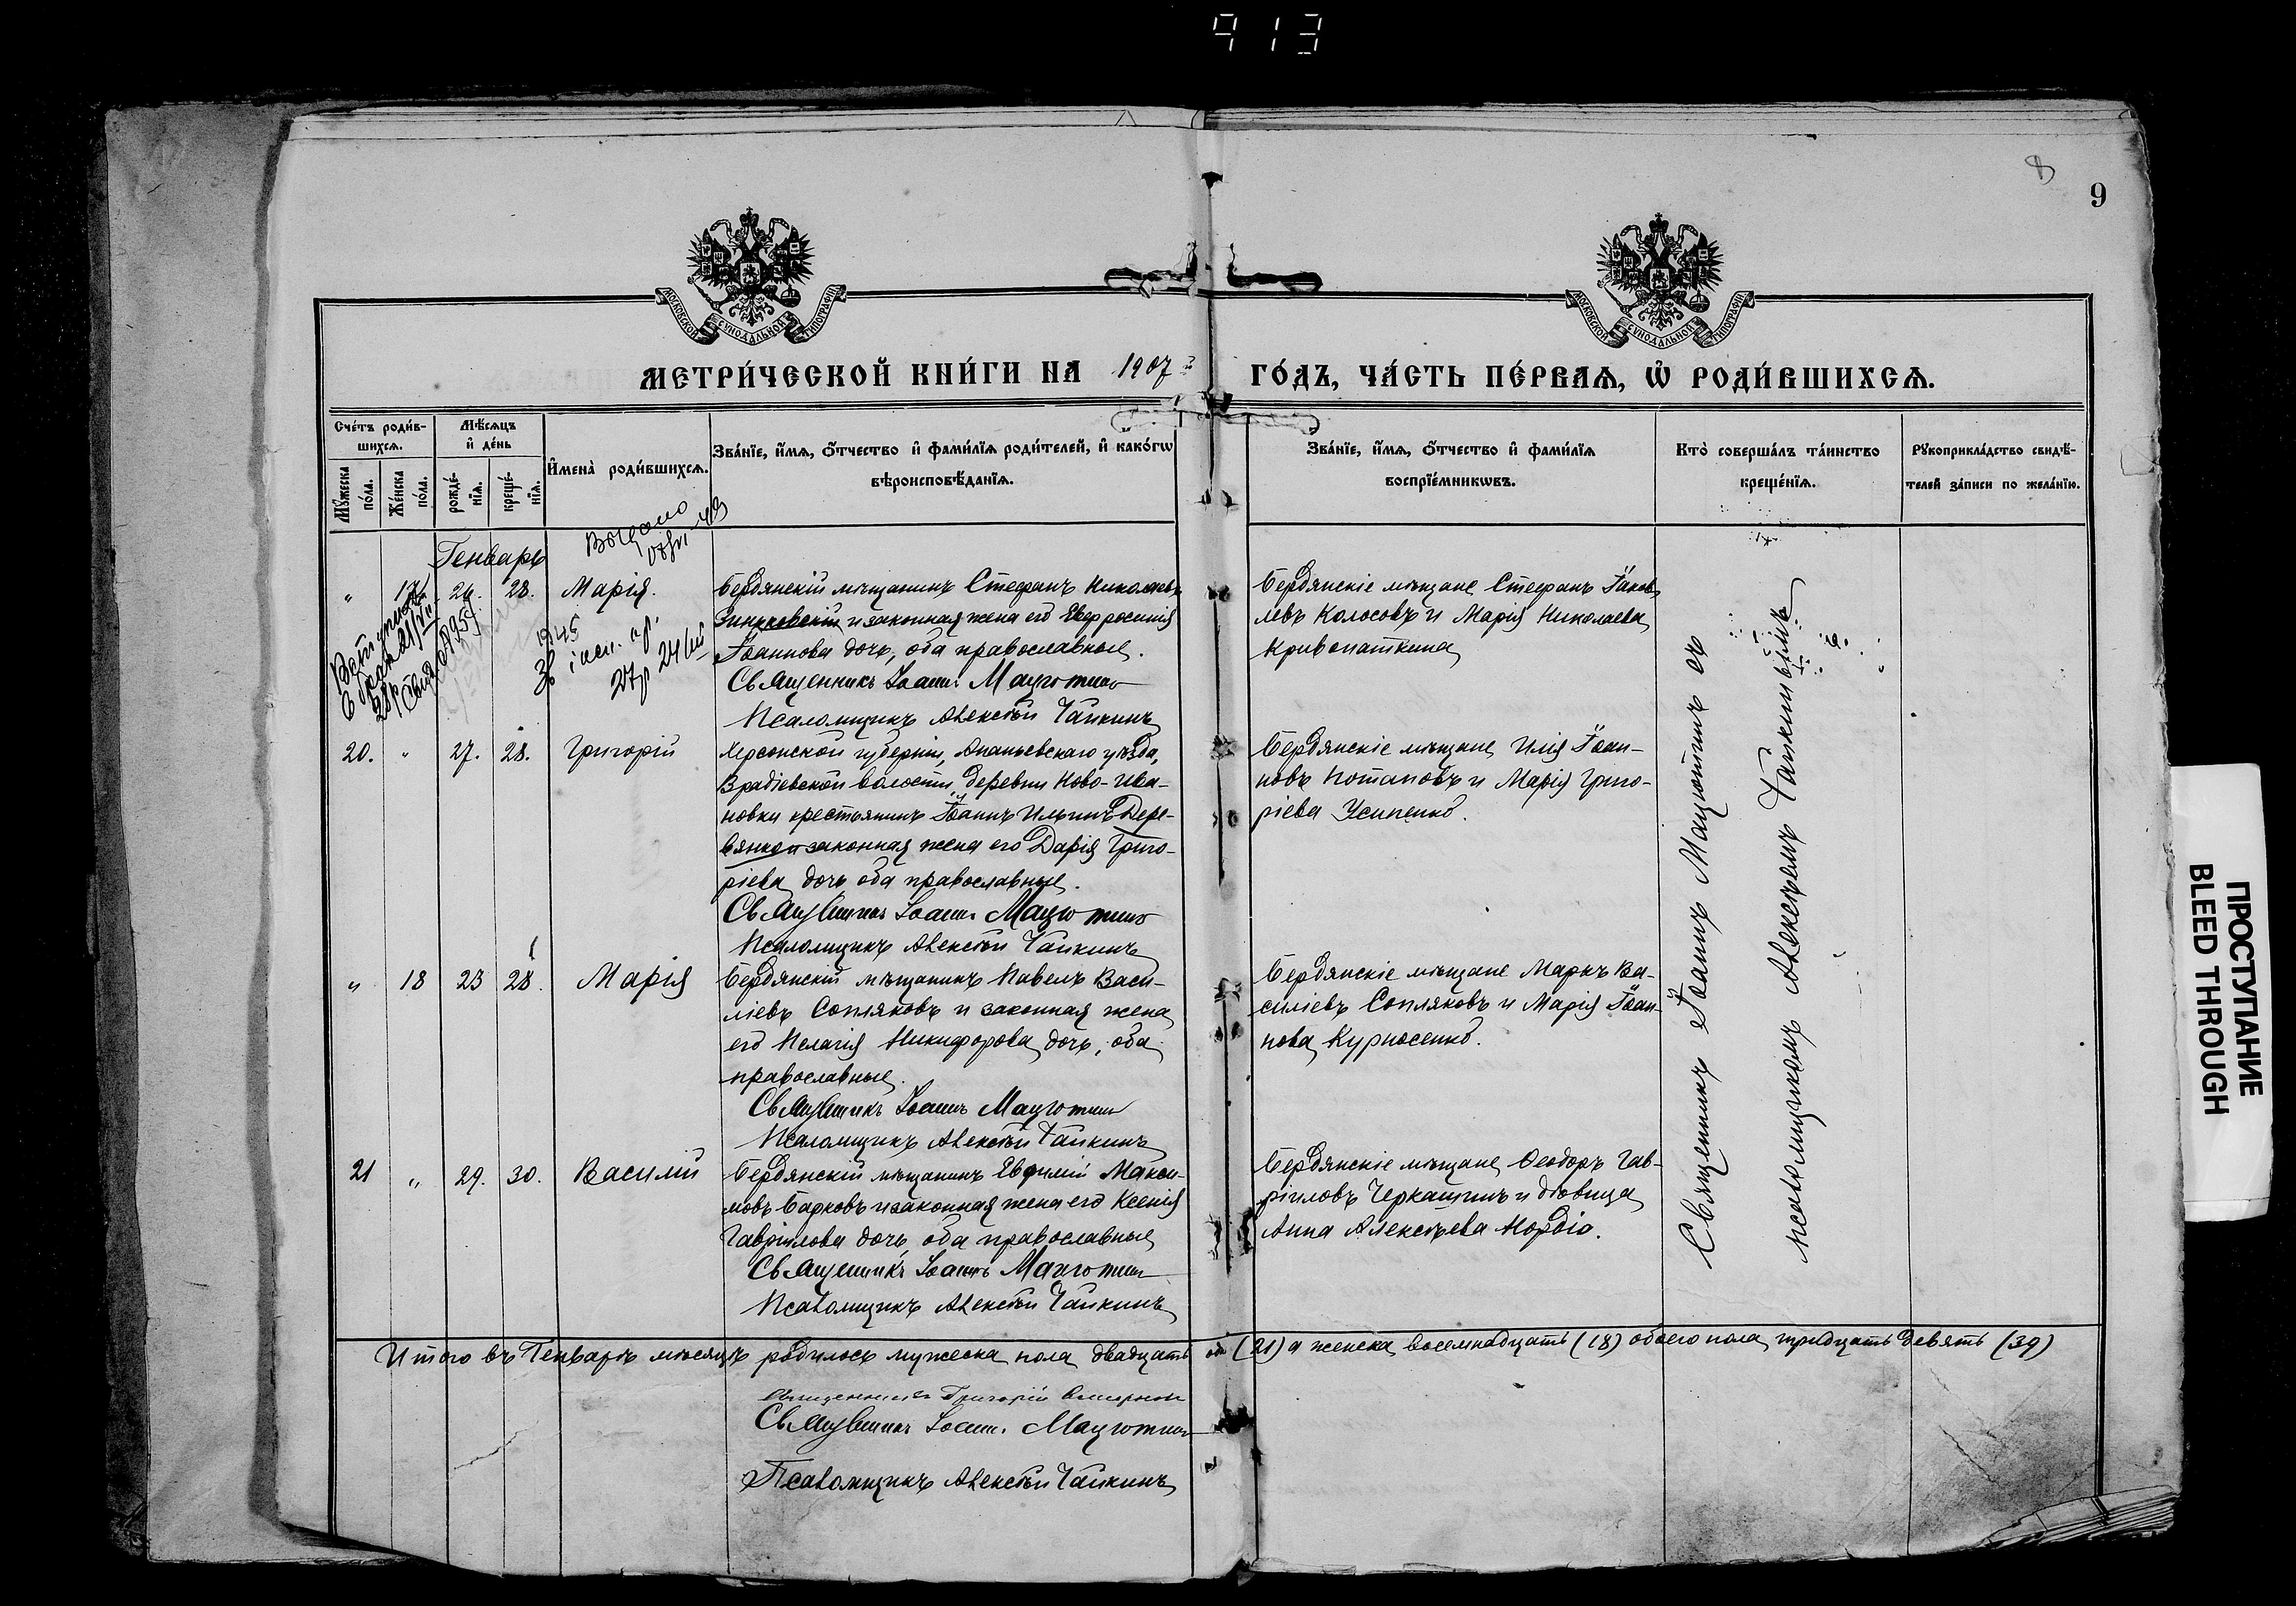 913
8
9
МОСКОВСКОЙ СѴНОДАЛЬНОЙ ТИПОГРАФІИ
МОСКОВСКОЙ СѴНОДАЛЬНОЙ ТИПОГРАФІИ
МЕТРИ́ЧЕСКОЙ КНИ́ГИ НА 1907й ГО́ДЪ, ЧА́СТЬ ПЕ́РВАѦ, Ѡ РОДИ́ВШИХСѦ.
Сче́тъ роди́в-
шихсѧ.
Мꙋ́жеска
по́ла.
Же́нска
по́ла.
Мѣ́сѧцъ
и҆ де́нь
рожде́-
нїѧ.
креще́-
нїѧ.
И҆мена̀ роди́вшихсѧ.
Зва́нїе, и҆́мѧ, ѻ҆́тчество и҆ фами́лїѧ роди́телей, и҆ како́гѡ
вѣроисповѣ́данїѧ.
Зва́нїе, и҆́мѧ, ѻ҆́тчество и҆ фами́лїѧ
воспрїе́мникѡвъ.
Кто̀ соверша́лъ та́инство
креще́нїѧ.
Рꙋкоприкла́дство свидѣ́-
телей за́писи по жела́нїю.
Генварь
„ 17 26. 28. Марія.
Бердянскій мѣщанинъ Стефанъ Николаевъ
и законная жена его Евфросинія
Іоаннова дочь, оба православные.
Священникъ Іоаннъ Мацютинъ
Псаломщикъ Алексѣй Чайкинъ
Бердянскіе мѣщане Стефанъ Іаков-
левъ Колосовъ и Марія Николаева
Кривопаткина
1945
20. „ 27. 28. Григорій
Херсонской губерніи, Ананьевскаго уѣзда,
Врадіевской волости, деревни Ново-Ива-
новки крестьянинъ Іоаннъ Ильинъ Дере-
вянко и законная жена его Дарія Григо-
ріева дочь оба православные.
Священникъ Іоаннъ Мацютинъ
Псаломщикъ Алексѣй Чайкинъ
Бердянскіе мѣщане Илія Іоан-
новъ Потаповъ и Марія Григо-
ріева Усипенко.
„ 18 23 28. Марія
Бердянскій мѣщанинъ Павелъ Васи-
ліевъ Сопляковъ и законная жена
его Пелагія Никифорова дочь, оба
православные.
Священникъ Іоаннъ Мацютинъ
Псаломщикъ Алексѣй Чайкинъ
Бердянскіе мѣщане Маркъ Ва-
силіевъ Сопляковъ и Марія Іоан-
нова Курносенко.
21 „ 29. 30. Василій
Бердянскій мѣщанинъ Евфимій Макси-
мовъ Барковъ и законная жена его Ксенія
Гавріилова дочь оба православные
Священникъ Іоаннъ Мацютинъ
Псаломщикъ Алексѣй Чайкинъ
Бердянскіе мѣщане Ѳеодоръ Гав-
ріиловъ Черкашинъ и дѣвица
Анна Алексѣева Нордіо.
Священникъ Іоаннъ Мацютинъ съ
псаломщикомъ Алексѣемъ Чайкинымъ
Итого въ Генварѣ мѣсяцѣ родилось мужеска пола двадцать (21) а женска восемнадцать (18) обоего пола тридцать девять (39)
Священникъ Григорій
Священникъ Іоаннъ Мацютинъ
Псаломщикъ Алексѣй Чайкинъ
ПРОСТУПАНИЕ
BLEED THROUGH